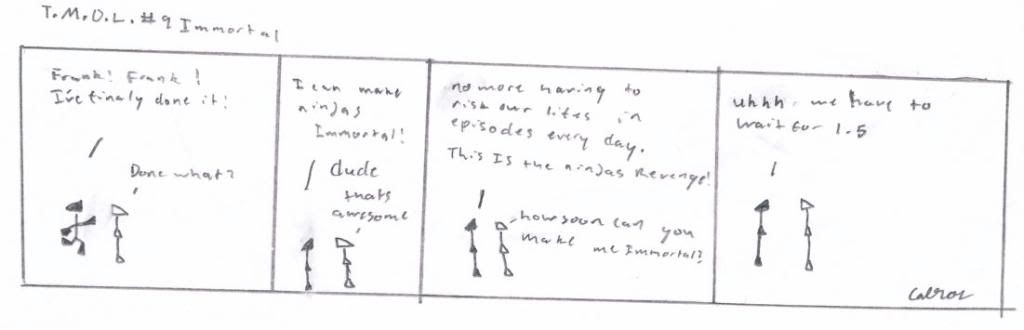 T.M.O.L. #9 Immortal
Frank! Frank!
I've finaly done it!
Done what?
I can make
ninjas
Immortal!
dude
thats
awesome
no more having to
risk our lifes in
episodes every day.
This Is the ninjas Revenge!
how soon can you
make me Immortal?
uhhh. we have to
wait for 1.5